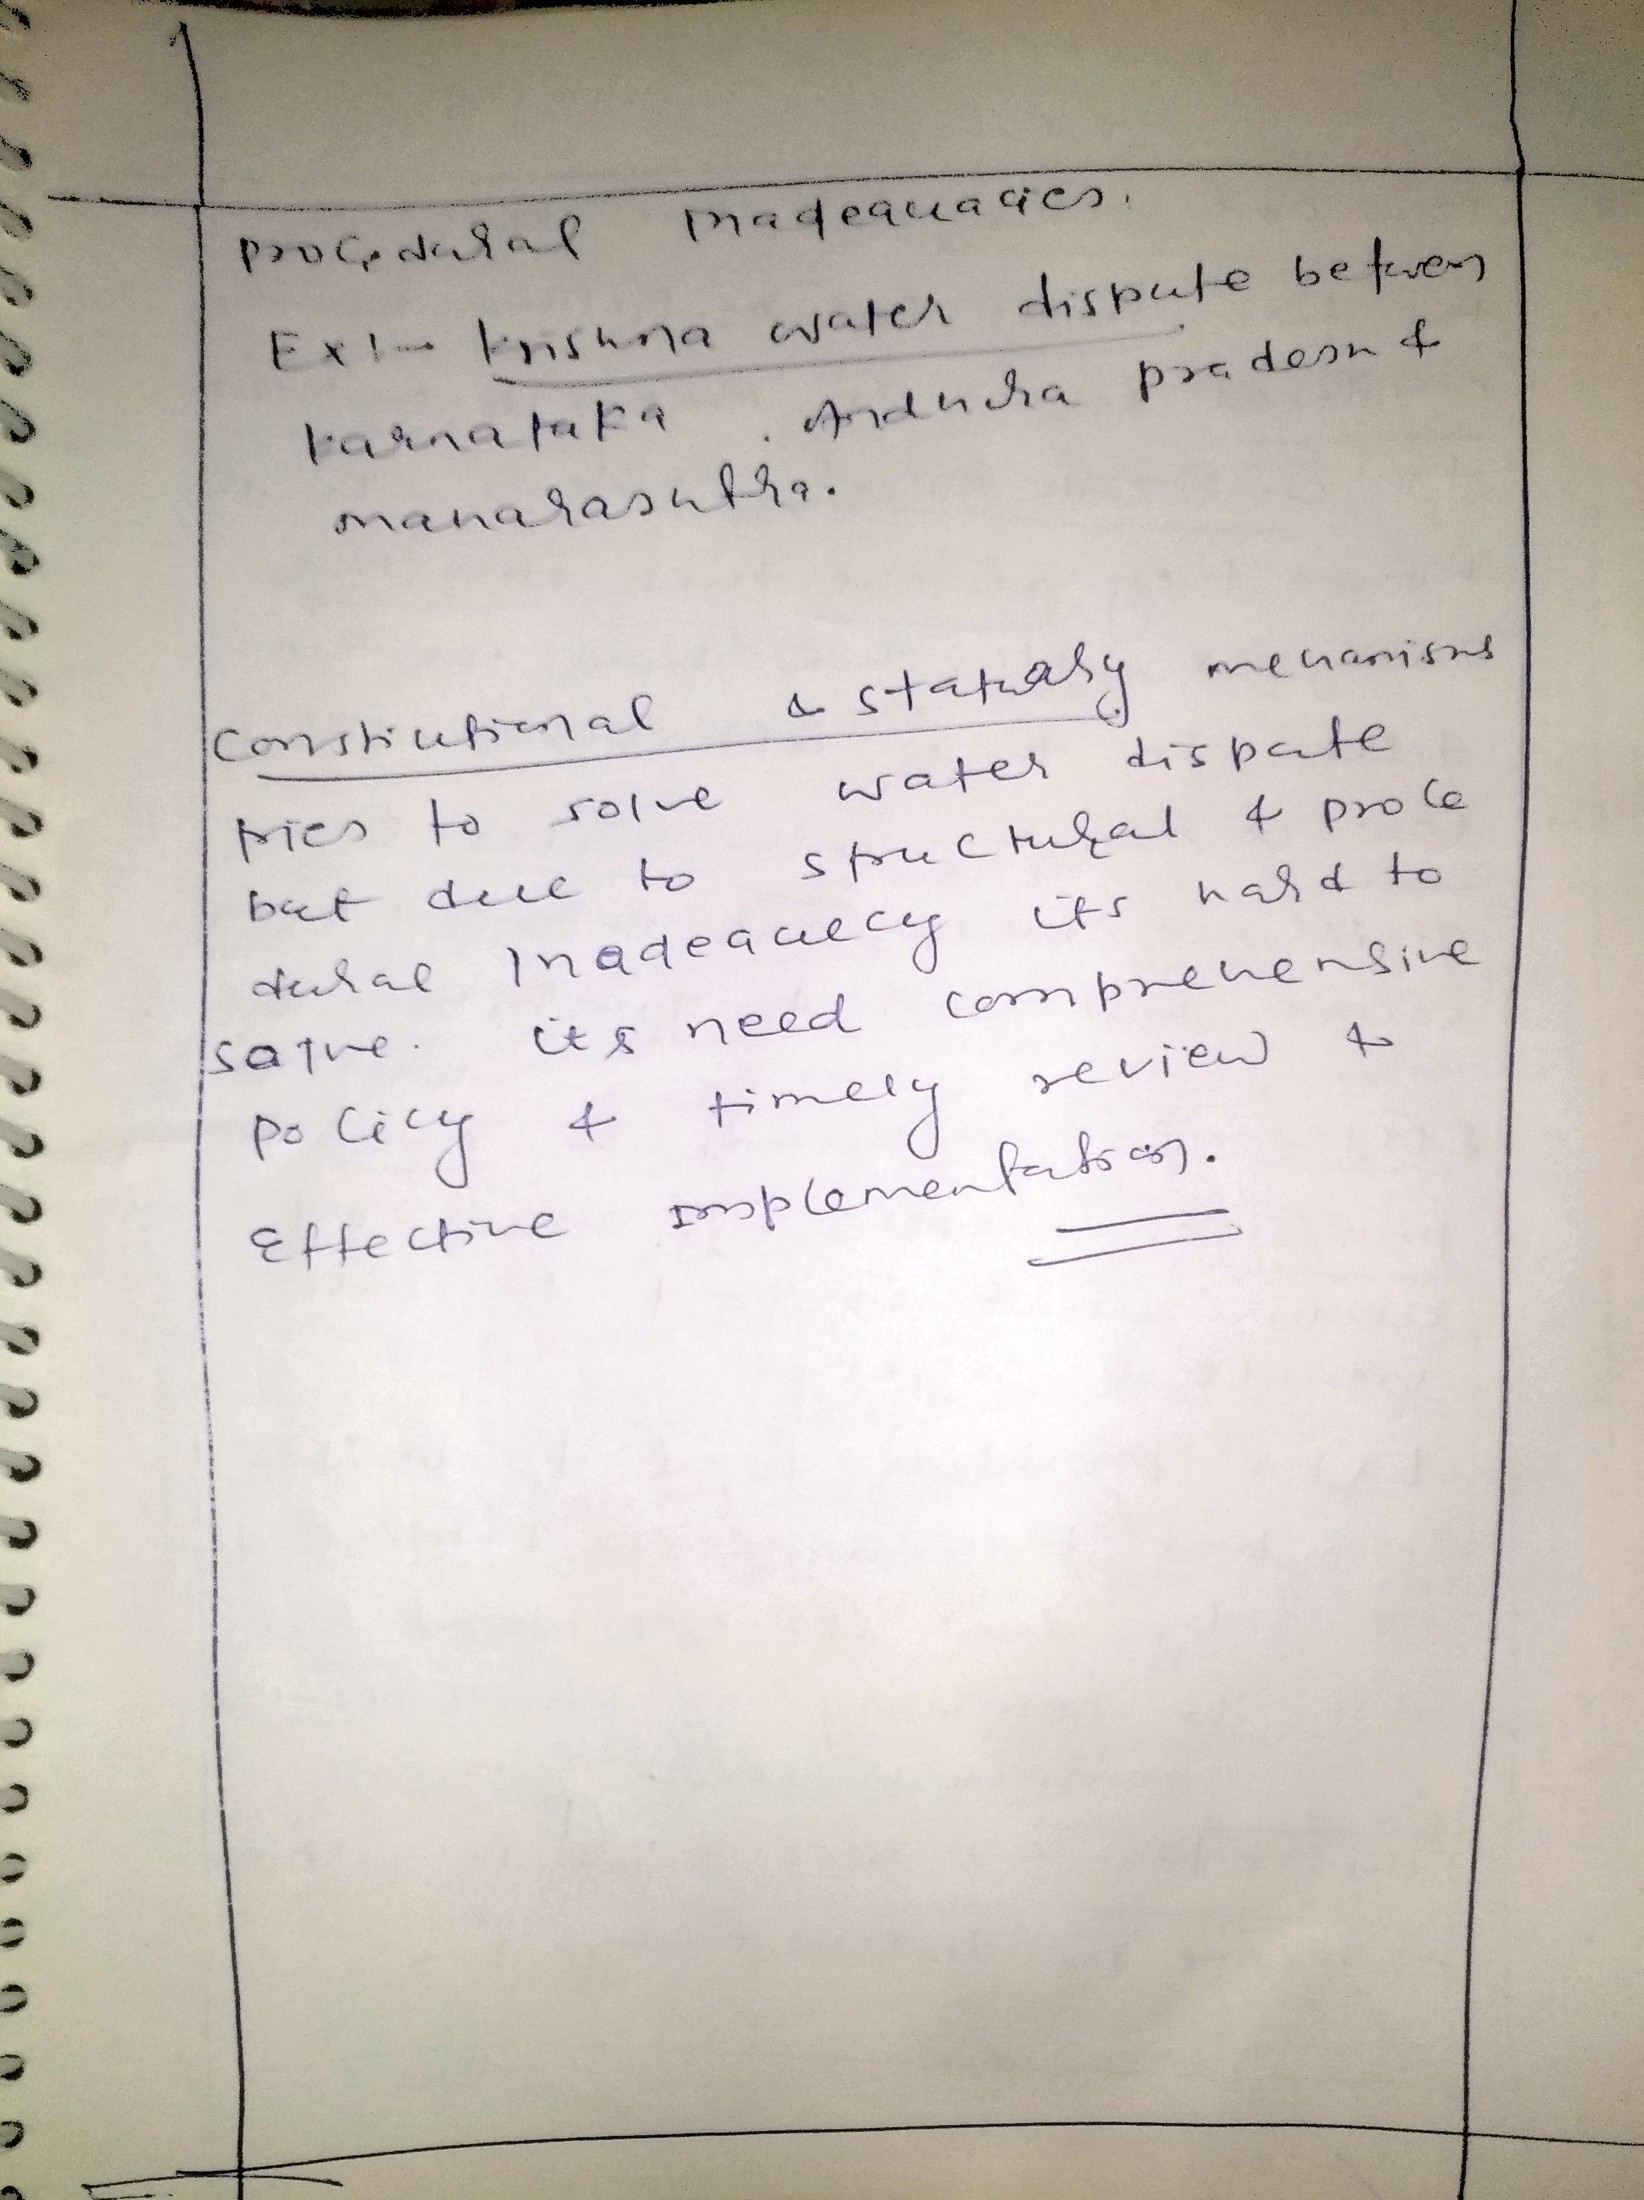 Procedural Inadequacies.
Ex:- Krishna water dispute between
Karnataka, Andhra Pradesh &
Maharashtra.
Constiutional & statuary mechanisms
tries to solve water dispute
but due to structural & proce
dural Inadequecy its hard to
solve. its need comprehensive
policy & timely review &
Effective Implementation.